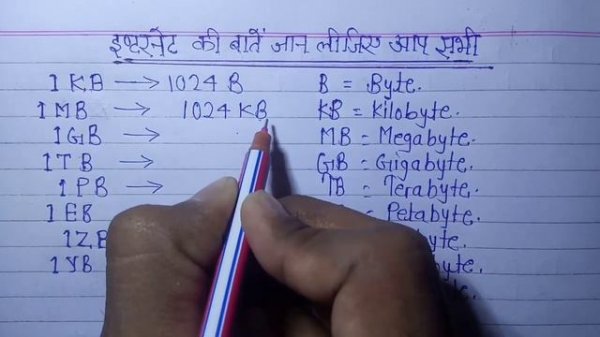 इण्टरनेट की बातें जान लीजिए आप सभी
1 KB → 1024 B B = Byte.
1 MB → 1024 KB KB = Kilobyte.
1 GB → MB = Megabyte.
1 TB → GB = Gigabyte.
1 PB → TB = Terabyte.
1 EB = Petabyte.
1 ZB
1 YB